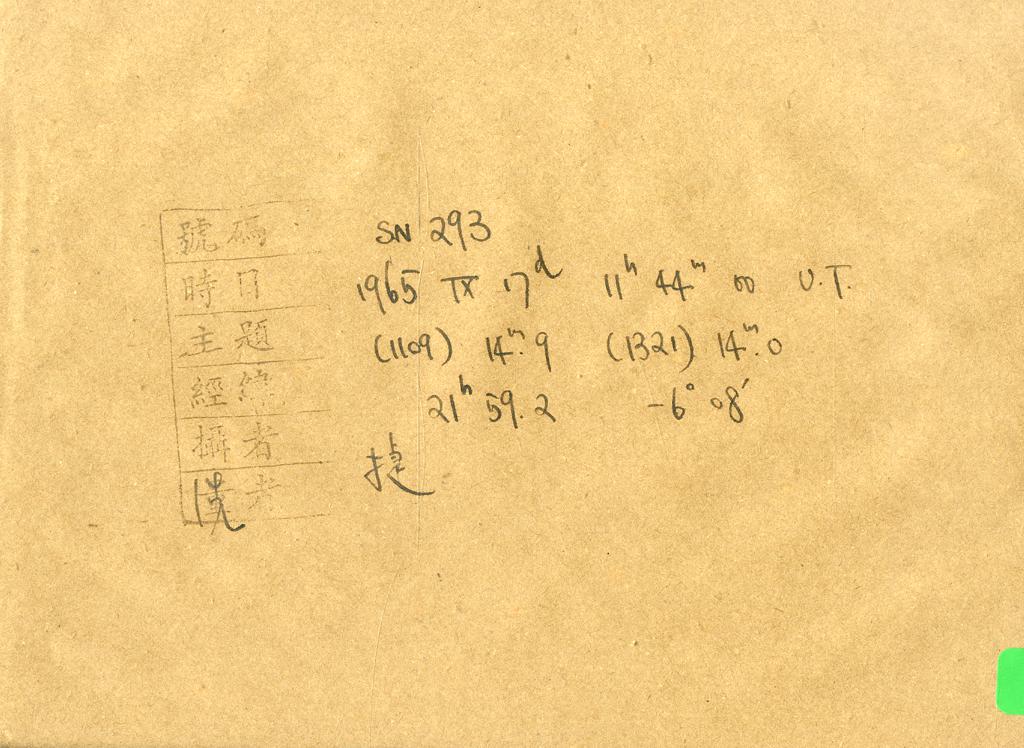 號碼 SN 293
時日 1965 IX 17d 11h 44m 00 U.T.
主題 (1109) 14m.9 (1321) 14m.0
經緯 21h 59.2 -6° 08′
攝者 捷
洗者